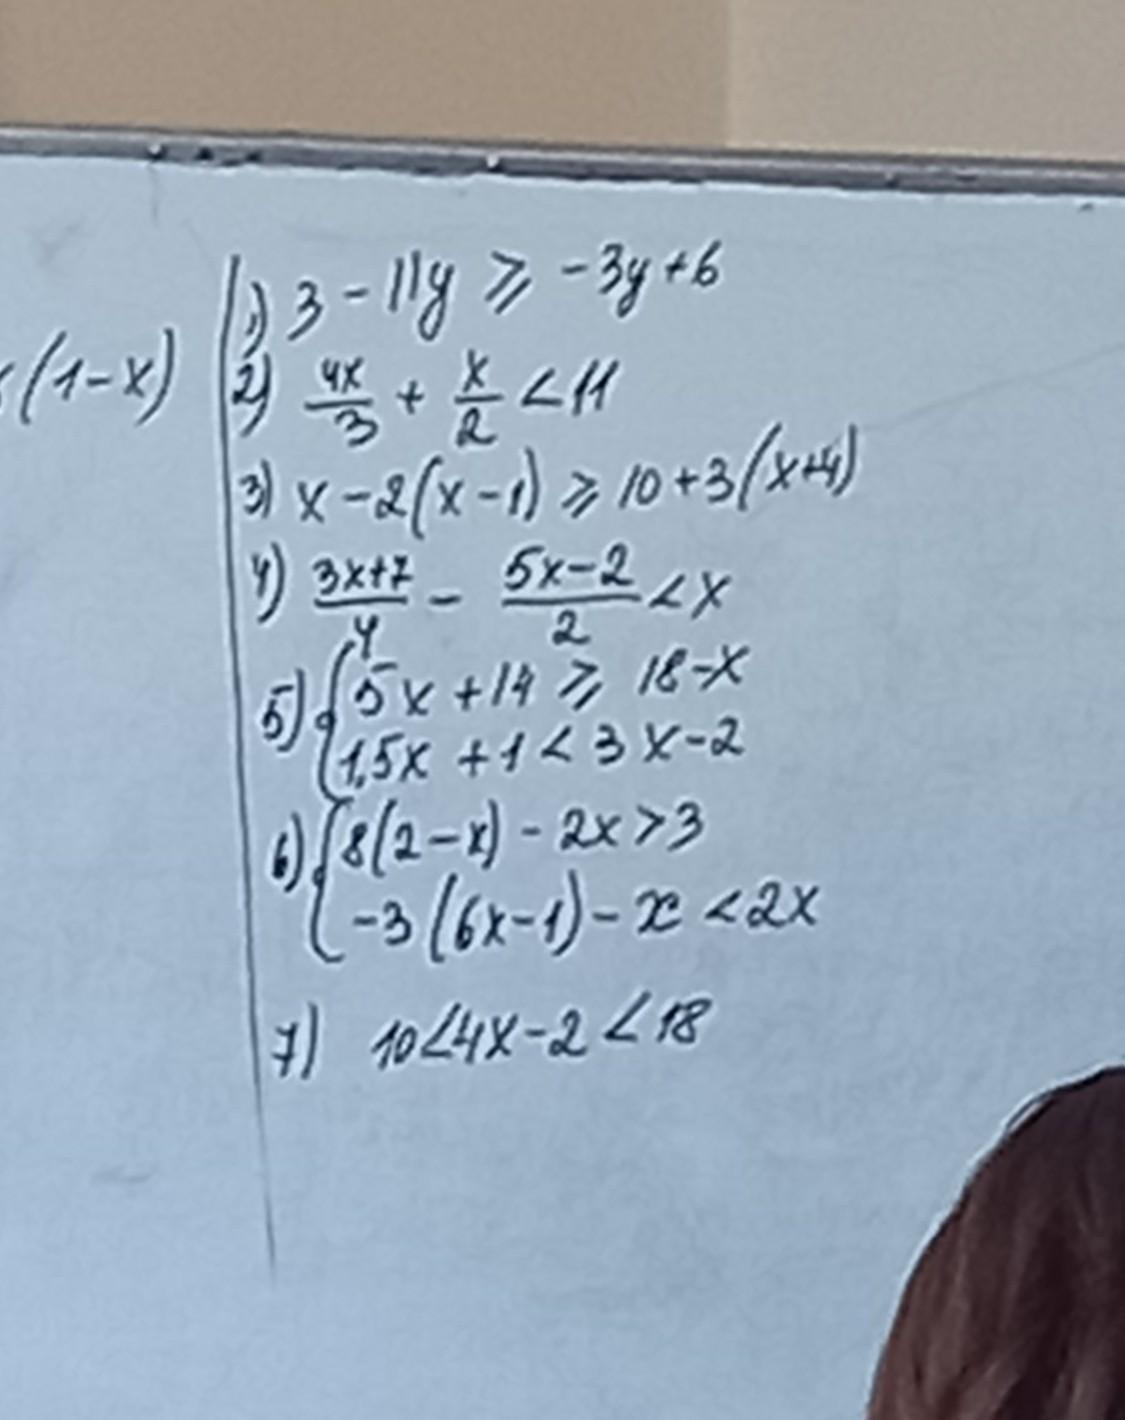 (1-x)
1) 3 - 11y ⩾ -3y+6
2) 4x/3 + x/2 < 11
3) x - 2(x-1) ⩾ 10+3(x+4)
4) 3x+7/4 - 5x-2/2 < x
5) { 5x + 14 ⩾ 18-x
1,5x + 1 < 3x-2
6) { 8(2-x) - 2x > 3
-3(6x-1) - x < 2x
7) 10<4x-2<18